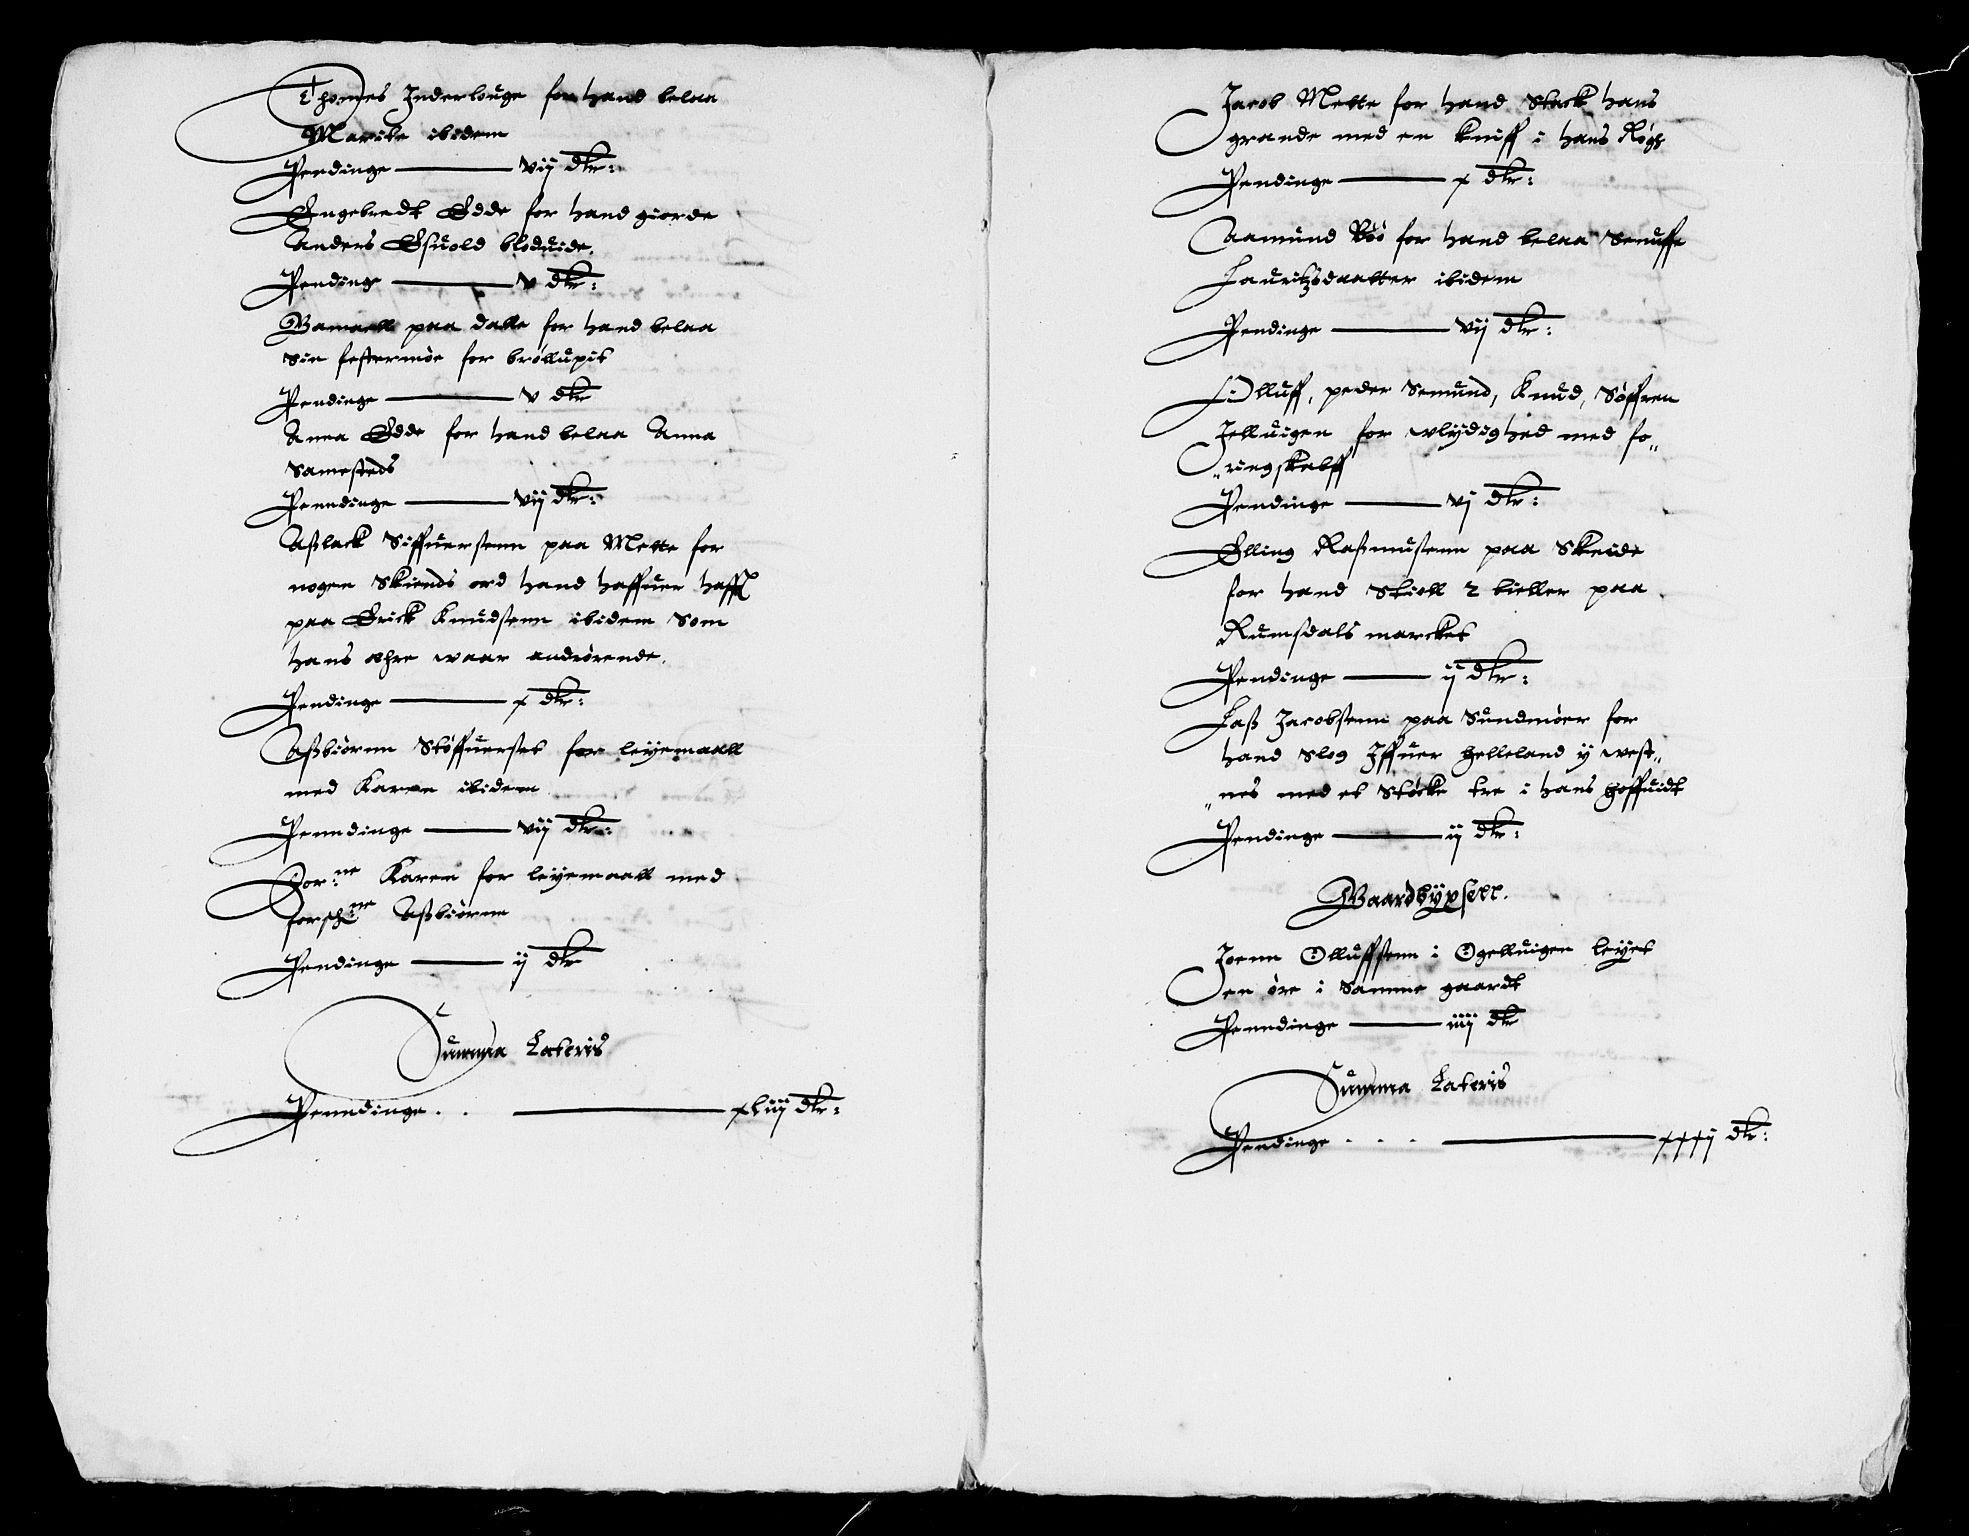 Thomes Inderlouge for hand belaa
Marite ibidem
Pendinge — vij dlr:
Engebredt Edde for hand giorde
Anders Esuold blodvide.
Pending — v dlr:
Gamaell paa dalle for hand belaa
Sin festermøe for brøllupit
Pendinge — v dlr
Anna Edde for hand belaa Anna
Samesteds
Penndinge — vij dlr:
Aßlack Siffuersenn paa Mette for
nogen Skiends ord hand haffuer hafft
paa Erick Knudsenn ibidem Som
hans æhre waar andrørende.
Pendinge — x dlr:
Aßbiørnn Støffuerset for leÿemaall
med Karen ibidem
Penndinge — vij dlr:
For:ne Karen for leÿemaall med
forsch:ne Aßbiørnn
Pendinge — ij dlr
Summa Lateris
Penndinge . . — xlviij dlr:
Jacob Mette for hand Stack hans
grande med en Kniff i hans Rÿgh
Pendinge — x dlr:
Aamund Bøø for hand belaa Senuffe
Lauritzsdaatter ibidem
Pendinge — vij dlr:
Olluff, peder Semund, Knud, Søffren
Jelluigen for wlÿdighed med fo„
„ringskalff
Pendinge — vj dlr:
Elling Raßmussenn paa Skeide
for hand Stiell 2 bieller paa
Rumsdals marcket
Pendinge — ij dlr:
Laß Jacobsenn paa Sundmøer for
hand Slog Iffuer Helleland ÿ west„
„nes med et Støcke tre i hans Hoffuidt
Pendinge — ij dlr:
Gaardbÿxsell.
Joenn Olluffsenn i Ogelluigen leÿet
en øre i Samme gaardt
Penndinge — iiij dlr
Summa Lateris
Pendinge . . . — xxxj dlr: